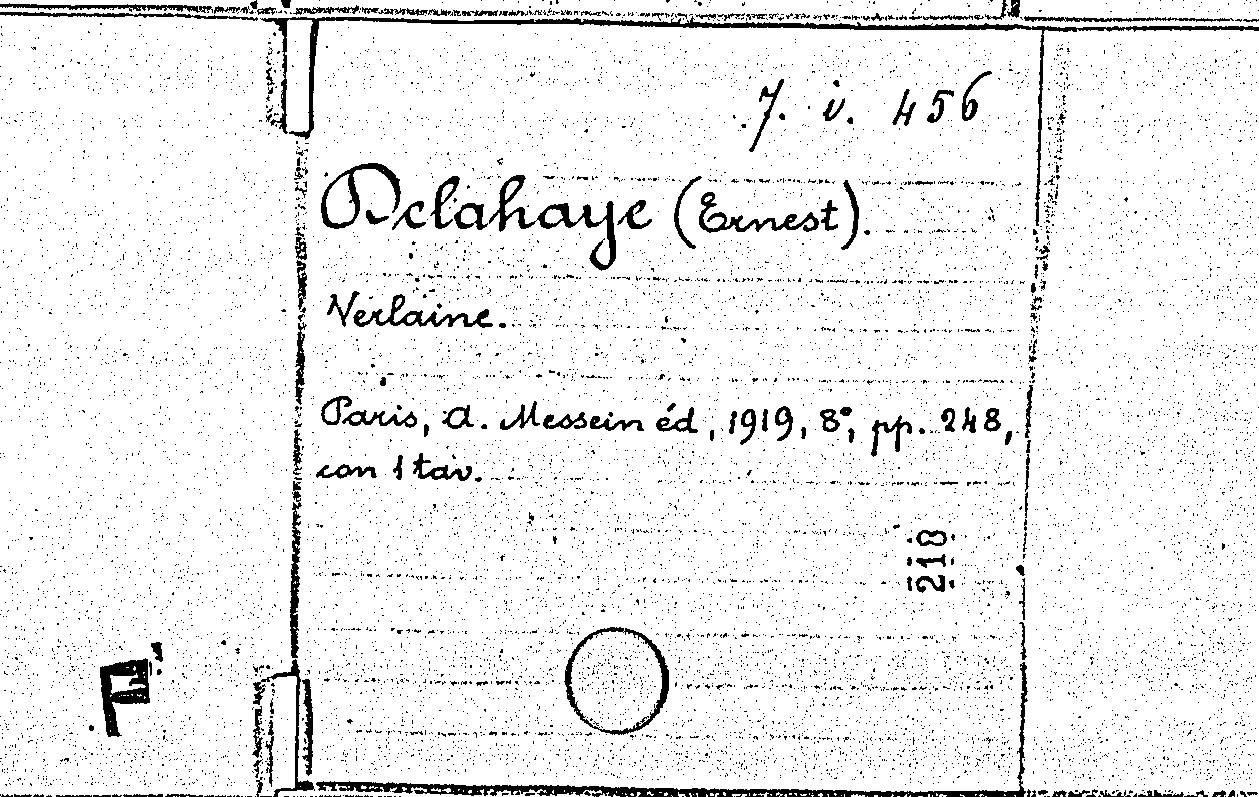 7. v. 456
Delahaye (Ernest).
Verlaine.
Paris, A. Messein éd, 1919, 8°, pp. 248,
con 1 tav.
218